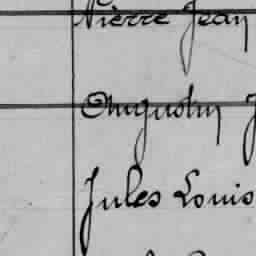 Pierre Jean
Augustin J
Jules Louis